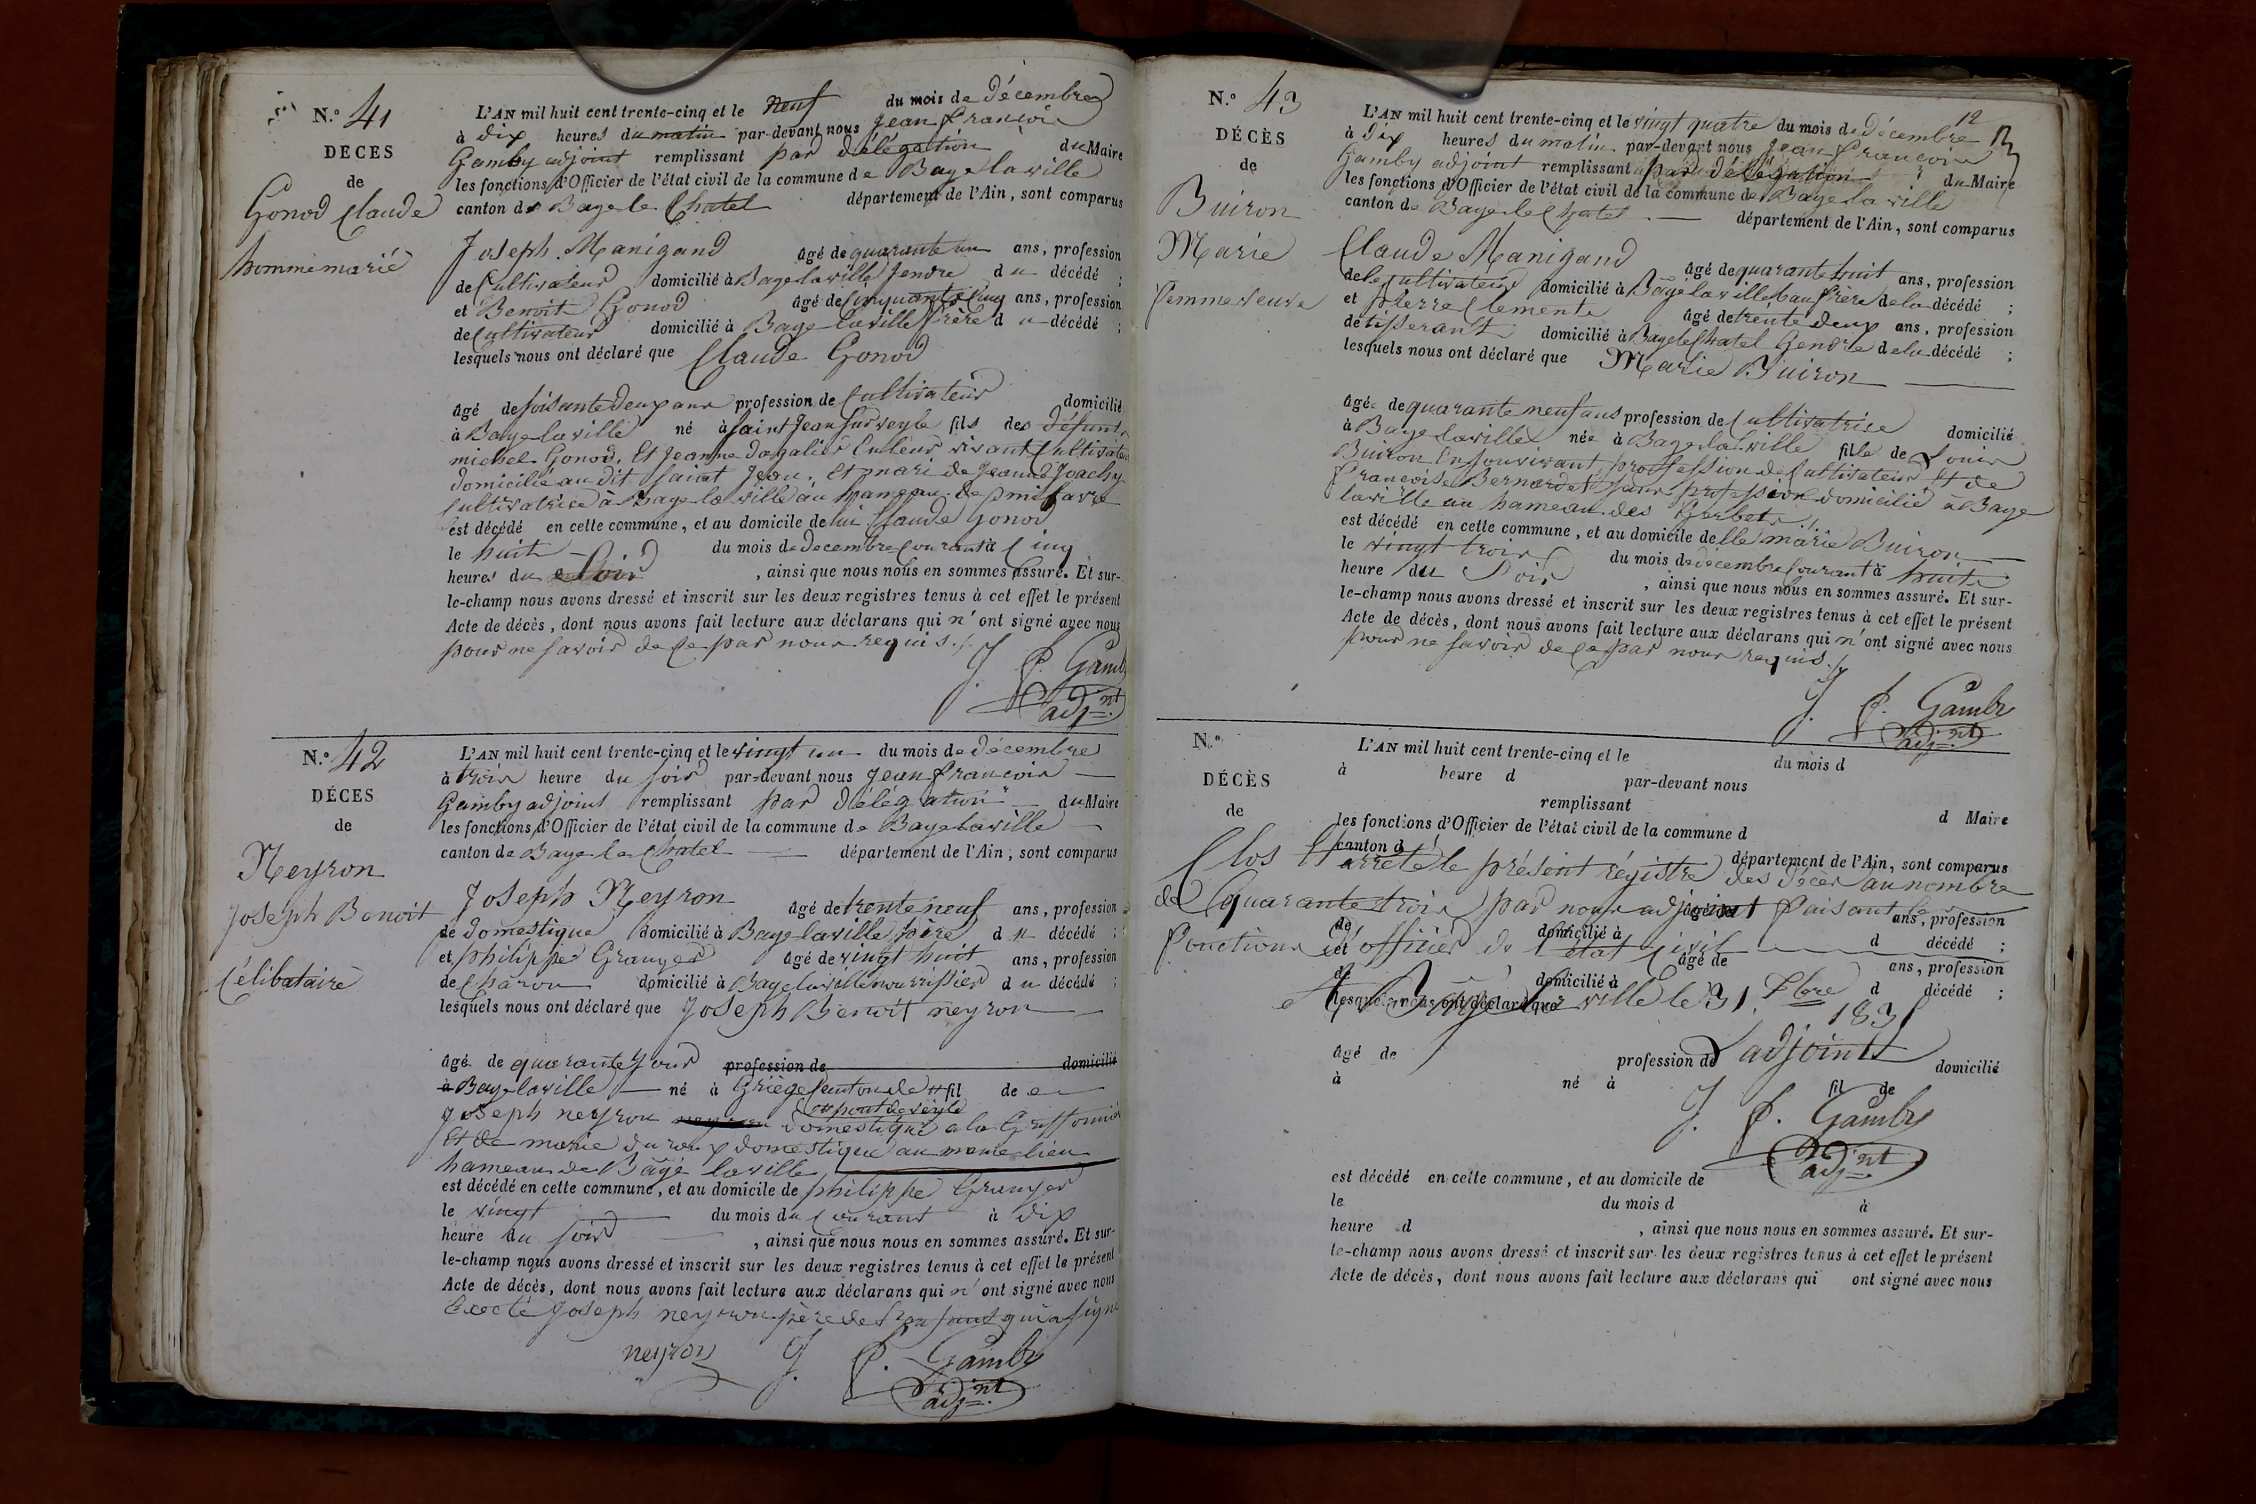 N.º 41
DÉCES
de
Gonod Claude
homme marié
L'AN mil huit cent trente-cinq et le neuf du mois de Décembre
à dix heures du matin par-devant nous Jean françois
Gamby adjoint remplissant par délégation du Maire
les fonctions d'Officier de l'état civil de la commune de Bagé la ville
canton de Bagé le Chatel département de l'Ain, sont comparus
Joseph Manigand âgé de quarante un ans, profession
de Cultivateur domicilié à Bagé la ville gendre du décédé ;
et Benoit Gonod âgé de Cinquante cinq ans, profession
de Cultivateur domicilié à Bagé la ville frère du décédé ;
lesquels nous ont déclaré que Claude Gonod
âgé de soisante deux ans profession de Cultivateur domicilié
à Bagé la ville né à Saint Jean sur veyle fils des défunts
michel Gonod, Et Jeanne vivant Cultivateur
domicilié au dit Saint Jean, Et mari de Jeanne
Cultivatrice à Bagé la ville au hameau de
est décédé en cette commune, et au domicile de lui Claude Gonod
le huit du mois de decembre Courant à Cinq
heures du soir, ainsi que nous nous en sommes assuré. Et sur-
le-champ nous avons dressé et inscrit sur les deux registres tenus à cet effet le présent
Acte de décès, dont nous avons fait lecture aux déclarans qui n'ont signé avec nous
pour ne savoir de ce par nous requis ./.
J. f. Gamby
adj.nt
N.º 42
DÉCES
de
Neyron
Joseph Benoit
Célibataire
L'AN mil huit cent trente-cinq et le vingt un du mois de décembre
à trois heure du soir par-devant nous Jean françois
Gamby adjoint remplissant par délégation du Maire
les fonctions d'Officier de l'état civil de la commune de Bagé la ville
canton de Bagé le Chatel département de l'Ain, sont comparus
Joseph Neyron âgé de trente neuf ans, profession
de domestique domicilié à Bagé la ville père du décédé ;
et philippe Granger âgé de vingt huit ans, profession
de Charon domicilié à Bagé la ville nourrissier du décédé ;
lesquels nous ont déclaré que Joseph Benoit neyron
âgé de quarante jour profession de domicilié
à Bagé la ville né à Griège Canton de # fil de
# pont de veyle
joseph neyron domestique a la Griffonnière
Et de marie duroux domestique au meme lieu
hameau de Bagé la ville
est décédé en cette commune, et au domicile de philippe Granger
le vingt du mois du Courant à dix
heure du soir, ainsi que nous nous en sommes assuré. Et sur-
le-champ nous avons dressé et inscrit sur les deux registres tenus à cet effet le présent
Acte de décès, dont nous avons fait lecture aux déclarans qui n'ont signé avec nous
Joseph neyron père de qui a signé
neyron J. f. Gamby
adj.nt
12
N.º 43
DÉCÈS
de
Buiron
Marie
femme veuve
L'AN mil huit cent trente-cinq et le vingt quatre du mois de décembre
à dix heures du matin par-devant nous Jean françois
Gamby adjoint remplissant par Délégation du Maire
les fonctions d'Officier de l'état civil de la commune de Bagé la ville
canton de Bagé le Chatel département de l'Ain, sont comparus
Claude Manigand âgé de quarante huit ans, profession
de cultivateur domicilié à Bagé la ville beau frère de la décédé ;
et pierre Clemente âgé de trente deux ans, profession
de tisserant domicilié à Bagé le Chatel Gendre de la décédé ;
lesquels nous ont déclaré que Marie Buiron
âgé de quarante neuf ans profession de Cultivatrice domicilié
à Bagé la ville née à Bagé la ville fille de Louis
Buiron En son vivant profession de Cultivateur Et de
françoise Bernardet sans profession domicilié à Bagé
la ville au hameau des
est décédé en cette commune, et au domicile de lle marie Buiron
le vingt trois du mois de décembre Courant à huit
heure du Soir, ainsi que nous nous en sommes assuré. Et sur-
le-champ nous avons dressé et inscrit sur les deux registres tenus à cet effet le présent
Acte de décès, dont nous avons fait lecture aux déclarans qui n'ont signé avec nous
pour ne savoir de ce par nous requis ./.
J. f. Gamby
adj.nt
N.º
DÉCÈS
de
L'AN mil huit cent trente-cinq et le du mois d
à heure d par-devant nous
remplissant d Maire
les fonctions d'Officier de l'état civil de la commune d
canton d département de l'Ain, sont comparus
Clos Et arreté le présent régistre des décès au nombre
de Quarante trois par nous adjoint faisant les
âgé de ans, profession
de domicilié à d décédé ;
fonctions d'officier de l'état civil
et âgé de ans, profession
de domicilié à d décédé ;
lesquels nous ont déclaré que
A Bagé la ville le 31 Xbre 1835
L'adjoint
âgé de profession de domicilié
à né à fil de
J. f. Gamby
adj.nt
est décédé en cette commune, et au domicile de
le du mois d à
heure d , ainsi que nous nous en sommes assuré. Et sur-
le-champ nous avons dressé et inscrit sur les deux registres tenus à cet effet le présent
Acte de décès, dont nous avons fait lecture aux déclarans qui ont signé avec nous